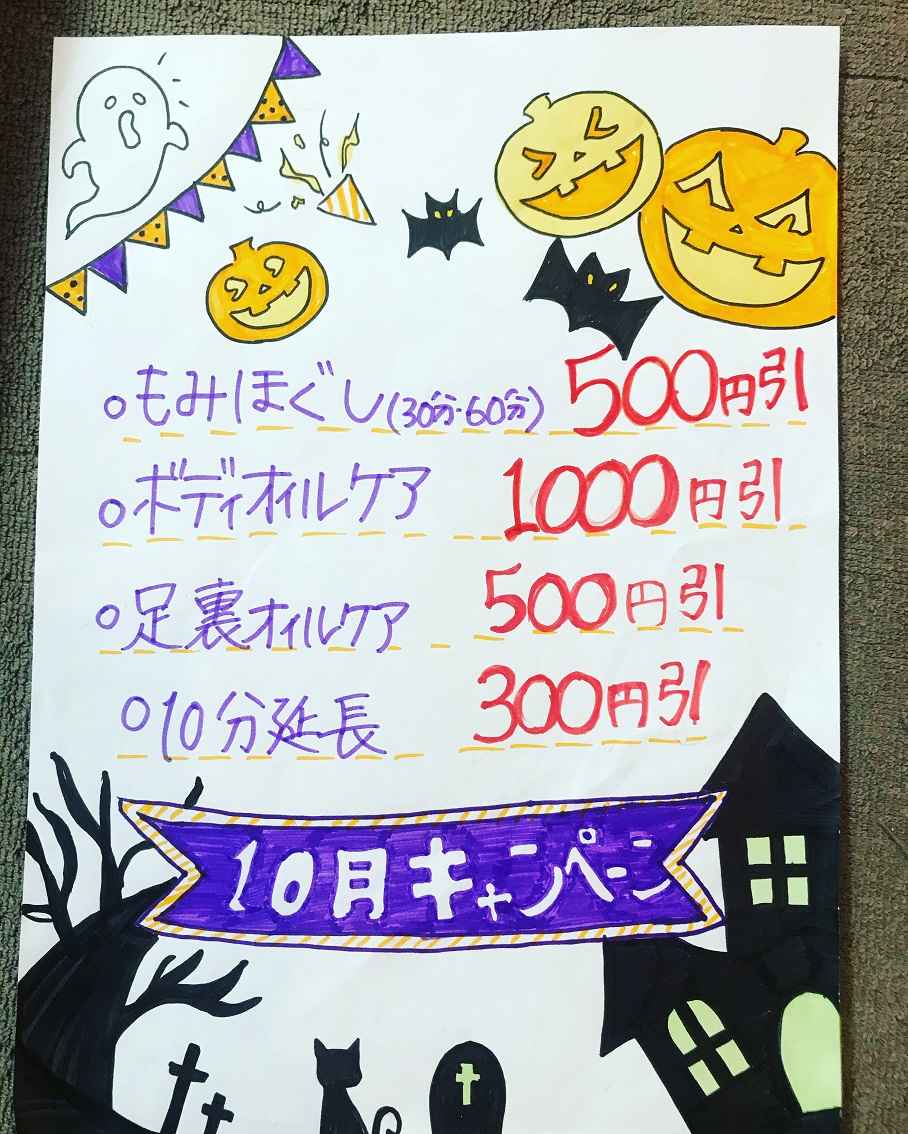 ○もみほぐし(30分・60分) 500円引
○ボディオイルケア 1000円引
○足裏オイルケア 500円引
○10分延長 300円引
10月キャンペーン